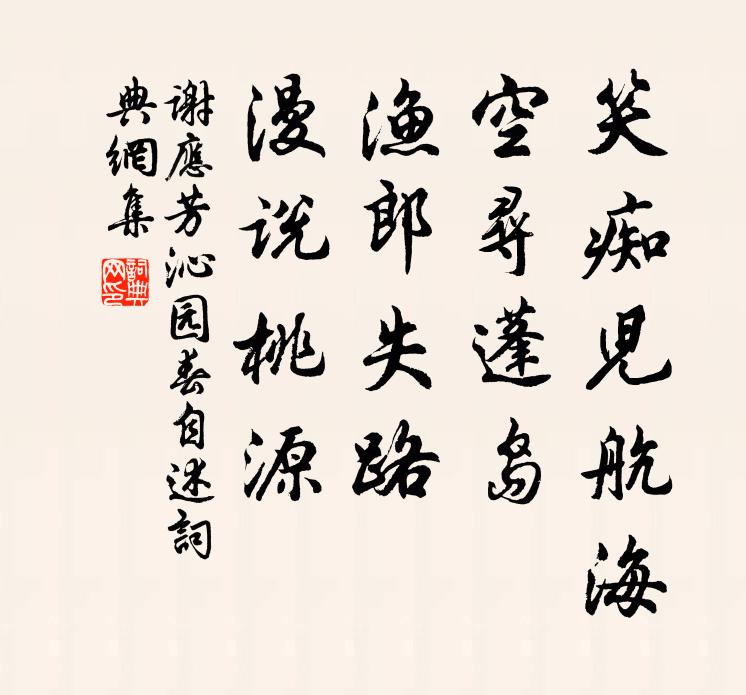 笑痴児航海
空尋蓬島
漁郎失路
漫说桃源
谢應芳沁园春自述詞
典網集
詞典网印